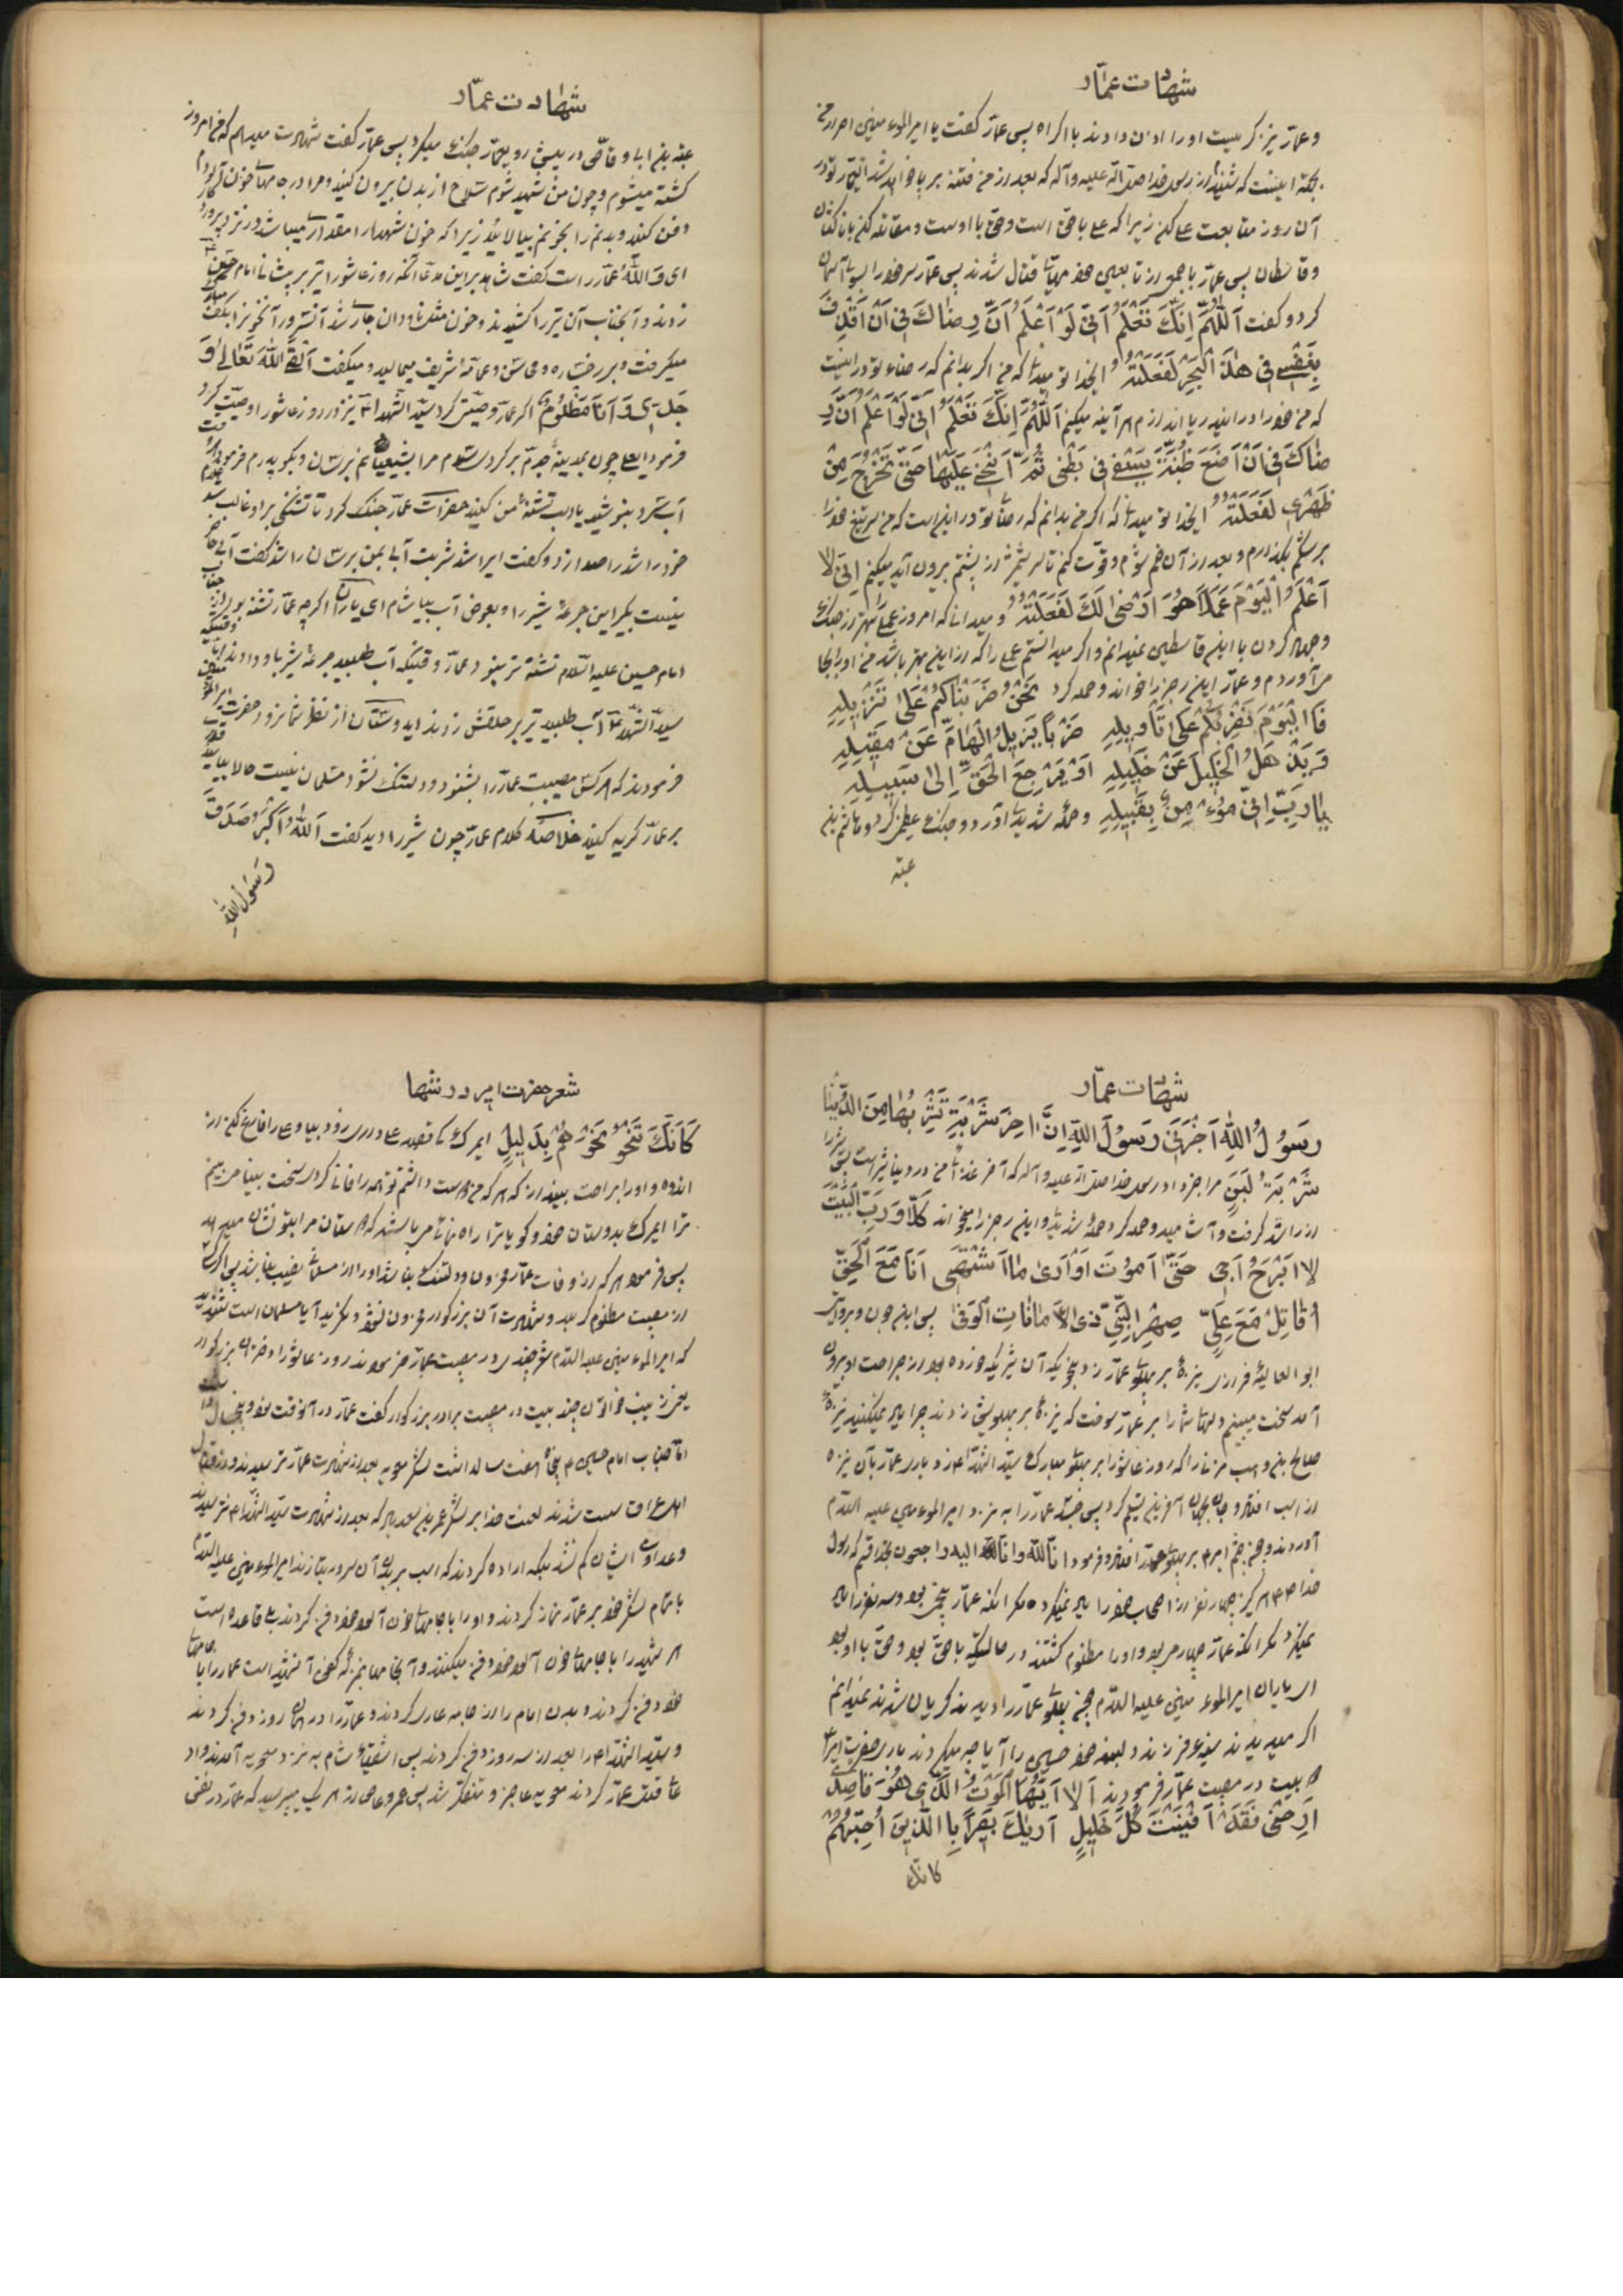 شهادت عمّار
و عمّار نیز بگریست او را اذن دادند با اکراه پس عمّار گفت یا امیرالمؤمنین اصرار من
بجهة اینست که شنیدم از رسول خدا صلی الله علیه و آله که بعد از من فتنه برپا خواهد شد ای عمار تو در
آن روز متابعت علی کن زیرا که علی با حق است و حق با اوست و مقاتله کنی با ناکثان
و قاسطان پس عمّار با جمعی از تابعین خود مهیای قتال شدند پس عمّار سر خود را بسوی آسمان
کرد و گفت اَللّهُمَّ اِنَّکَ تَعْلَمُ اَنّی لَوْ اَعْلَمُ اَنَّ رِضاکَ فی اَنْ اَقْذِفَ
بِنَفْسی فی هذَا الْبَحْرِ لَفَعَلْتُهُ ایخدا تو میدانی که من اگر بدانم که رضاء تو در اینست
که من خود را در این دریا اندازم هر آینه میکنم اَللّهُمَّ اِنَّکَ تَعْلَمُ اَنّی لَوْ اَعْلَمُ اَنَّ رِ
ضاکَ فی اَنْ اَضَعَ ظُبَةَ سَیْفی فی بَطْنی ثُمَّ اَنْحَنی عَلَیْها حَتّی تَخْرُجَ مِنْ
ظَهْری لَفَعَلْتُهُ ایخدا تو میدانی که اگر من بدانم که رضای تو در این است که من سر تیغ خود را
بر شکم بگذارم و بعد از آن خم شوم و قوّت کنم تا سر شمشیر از پشتم بیرون آید میکنم اِنّی لا
اَعْلَمُ الْیَوْمَ عَمَلاً هُوَ اَرْضی لَکَ لَفَعَلْتُهُ و میدانی که امروز عملی بهتر از جنگ
و جهاد کردن با این قاسطین نمیدانم و اگر میدانستم عملی را که از این بهتر باشد من او را بجا
می آوردم و عمّار این رجز را خواند و حمله کرد نَحْنُ ضَرَبْناکُمْ عَلی تَنْزیلِهِ
فَالْیَوْمَ نَضْرِبُکُمْ عَلی تَأْویلِهِ ضَرْباً یُزیلُ الْهامَ عَنْ مَقیلِهِ
وَ یُذْهِلُ الْخَلیلَ عَنْ خَلیلِهِ اَوْ یَرْجِعَ الْحَقُّ اِلی سَبیلِهِ
یا رَبِّ اِنّی مُؤْمِنٌ بِقیلِهِ و حمله شدیدی آورد و جنگ عظیم کرد و هاشم بن
عتبه
شهادت عمّار
عتبة بن ابی وقّاص در پیش روی عمّار جنگ میکرد پس عمّار گفت شهادت میدهم که من امروز
کشته میشوم و چون من شهید شوم سلاح از بدن بیرون کنید و مرا در جامهای خون آلودم
دفن کنید و بدنم را بخونم بیالائید زیرا که خون شهدا را مقداری میباشد در نزد پروردگار
ای وَ اللّهِ عمّار راست گفت شاهد بر این مدّعا آنکه روز عاشورا تیر بر پیشانی امام حسین
زدند و آنجناب آن تیر را کشیدند و خون مثل ناودان جاری شد آنسرور آنخون را بکف
میگرفت و بر رخساره و محاسن و عمامۀ شریف میمالید و میگفت اَلْقَی اللّهَ تَعالی وَ
جَدّی وَ اَنَا مَظْلُومٌ اگر عمّار وصیّتی کرد سیّد الشهدا نیز در روز عاشورا وصیّت کرد
فرمود ایعلی چون بمدینۀ جدّم برگردی سلام مرا بشیعیانم برسان و بگو پدرم فرمود
آب سرد بنوشید یاد لب تشنۀ من کنید حضرات عمّار جنگ کرد تا تشنگی بر او غالب شد
خود راشد را صدا زد و گفت ای راشد شربت آبی بمن برسان راشد گفت آب
نیست بگیر این جرعۀ شیر را و بعوض آب بیاشام ای یاران اگرچه عمّار تشنه بود
امام حسین علیه السّلام تشنه تر بود عمّار وقتیکه آب طلبید جرعۀ شیر باو دادند
سیّد الشّهداء آب طلبید تیر بر حلقش زدند ایدوستان از نظر شما نرود حضرت
فرمودند که هر کس مصیبت عمّار را بشنود و دلتنک نشود مسلمان نیست حالا بیائید
بر عمّار گریه کنید خلاصه کلام عمّار چون شیر را دید گفت اَللّهُ اَکْبَرُ صَدَقَ
رَسُولُ اللّهِ
شهادت عمّار
رَسُولُ اللّهِ اَخْبَرَنی رَسُولُ اللّهِ اِنَّ آخِرَ شَرْبَةٍ تَشْرَبُها مِنَ الدُّنْیا
شَرْبَةُ لَبَنٍ مرا خبر داد رسول خدا صلی الله علیه و آله که آخر غذای من در دنیا شیر است پس شیر را
از راشد گرفت و آشامید و حمله کرد حملۀ شدیدی و این رجز را میخواند کَلّا وَ رَبِّ الْبَیْتِ
لا اَبْرَحُ اَجی حَتّی اَمُوتَ اَوْ اَری ما اَشْتَهی اَنَا مَعَ الْحَقِّ
اُقاتِلُ مَعَ عَلِیٍّ صِهْرِ النَّبِیِّ ذِی الْاَماناتِ الْوَفی پس ابن جون و بروایتی
ابو العالیۀ فزاری نیزۀ بر پهلوی عمّار زد بنحویکه آن شیریکه خورده بود از جراحت او بیرون
آمد سخت میبینم دلهای شما را بر عمّار سوخت که نیزۀ بر پهلویش زدند چرا یاد نمیکنید نیزۀ
صالح بن وهب مزنی را که روز عاشورا بر پهلوی مبارک سیّد الشّهداء زد باری عمّار بآن نیزه
از اسب افتاد و جان بجهان آفرین تسلیم کرد پس جسد عمّار را به نزد امیرالمؤمنین علیه السّلام
آوردند و چون چشم امیر بر پهلوی عمّار افتاد فرمود انّا للّه و انّا الیه راجعون بخدا قسم که رسول
خدا هرگز چهار نفر از اصحاب خود را یاد نمیکرد مگر آنکه عمّار پنجمی بود و سه نفر را یاد
نمیکرد مگر آنکه عمّار چهارمی بود و او را مظلوم کشتند در حالتیکه با حق بود و حق با او بود
ای یاران امیرالمؤمنین علیه السّلام چون پهلوی عمّار را دیدند گریان شدند نمیدانم
اگر میدیدند سینۀ فرزند دلبند خود حسین را آیا چه میکردند باری حضرت امیر
بیت در مصیبت عمّار فرمودند اَلا اَیُّهَا الْمَوْتُ الَّذی هُوَ قاصِدی
اَرِحْنی فَقَدْ اَفْنَیْتَ کُلَّ خَلیلٍ اَراکَ بَصیراً بِالَّذینَ اُحِبُّهُمْ
کانّک
شعر حضرت امیر در رثاء
کَاَنَّکَ تَنْحُو نَحْوَهُمْ بِدَلیلٍ ایمرگ که قصد علی داری زود بیا و علی را فارغ کن از
اندوه و او را براحت بینداز که هر که من دوست داشتم تو همه را فانی کردی سخت بینا می بینم
ترا ایمرگ بدوستان خود گویا ترا راهنمائی میباشد که دوستان مرا بتو نشان میدهد
پس فرمود هر که از وفات عمّار محزون و دلتنگ نباشد او را از مسلمانی نصیب نباشد پس اگر کسی
از مصیبت مظلوم کربلا و شهادت آن بزرگوار محزون نشود و نگرید آیا مسلمان است شنیدید
که امیرالمؤمنین علیه السّلام شعری چند در مصیبت عمّار فرمودند روز عاشورا دختر آن بزرگوار
یعنی زینب خواتون چند بیت در مصیبت برادر بزرگوار گفت عمّار در آنوقت نود و پنج سال
امّا جناب امام حسین پنجاه و هفت سال داشت لشکر معویه بعد از شهادت عمّار ترسیدند و در قتال
اهل عراق سست شدند لعنت خدا بر لشکر عمر بن سعد باد که بعد از شهادت سیّد الشّهداء نترسیدند
و عداوت ایشان کم نشد بلکه اراده کردند که اسب بر بدن آن سرور بتازند امیرالمؤمنین علیه السّلام
با تمام لشکر خود بر عمّار نماز کردند و او را با جامهای خون آلود خود دفن کردند بلی قاعده است
هر شهید را با جامهای خون آلود خود دفن میکنند و آنجامها بمنزلۀ کفن آنشهید است عمّار را با جامهای
خود دفن کردند و بدن امام را از جامه عاری کردند و عمّار را در همان روز دفن کردند
و سیّد الشّهداء را بعد از سه روز دفن کردند پس اشقیای شام به نزد معویه آمدند و ادّ
عای قتل عمّار کردند معویه عاجز و متفکّر شد پس عمرو عاص از هر یک میپرسید که عمّار در نفس